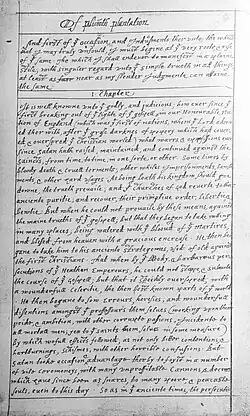 Of plimoth plantation
And first of yᵉ occasion, and Indusments ther unto; the which
that I may truly unfould, I must begine at yᵉ very roote, & rise
of yᵉ same. The which I shall endevor to manefest in a plaine
stile; with singuler regard unto yᵉ simple trueth in all things,
at least as near as my slender Judgmente can attaine
the same.
1. Chapter
It is well knowne unto yᵉ godly, and judicious, how ever since yᵉ
first breaking out of yᵉ lighte of yᵉ gospell, in our Honourable Na-
tion of England (which was yᵉ first of nations, whom yᵉ Lord adorn-
ed ther with, affter yᵗ grosse darknes of popery which had cover-
ed, & overspred yᵉ Christian worled) what warrs, & oppossissions ever
since, Satan hath raised, maintained, and continued against the
saincts, from time, to time, in one sorte, or other. Some times by
bloody death & cruell torments; other whiles Imprisonments, banish-
ments, & other hard usages. As being loath his kingdom should goe
downe, the trueth prevaile; and yᵉ churches of god reverte to their
anciente puritie; and recover, their primative order, libertie, &
bewtie. But when he could not prevaile by these means, against
the maine trueths of yᵉ gospell; but that they began to take rootting
in many places; being watered with yᵉ blood of yᵉ martires,
and blessed from heaven with a gracious encrease. He then be-
gane to take him to his anciente stratagemes, used of old against
the first Christians. That when by yᵉ bloody, & barbarous per-
secutions of yᵉ Heathen Emperours, he could not stoppe, & subverte
the course of yᵉ gospell; but that it speedily overspred, with
a wounderfull celeritie, the then best known parts of yᵉ world.
He then begane to sow errours, heresies, and wounderfull
disentions amongst yᵉ professours them selves (working upon their
pride, & ambition, with other corrupte passions, Incidente to
all mortall men; yea to yᵉ saints them selves in some measure)
by which wofull effects followed; as not only bitter contentions, &
hartburnings, schismes, with other horrible confusions. But
Satan tooke occasion & advantage therby to foyst in a number
of vile ceremonies, with many unprofitable cannons, & decrees
which have since been as snares, to many poore, & peaceable
souls, even to this day. So as in yᵉ anciente times, the persecution